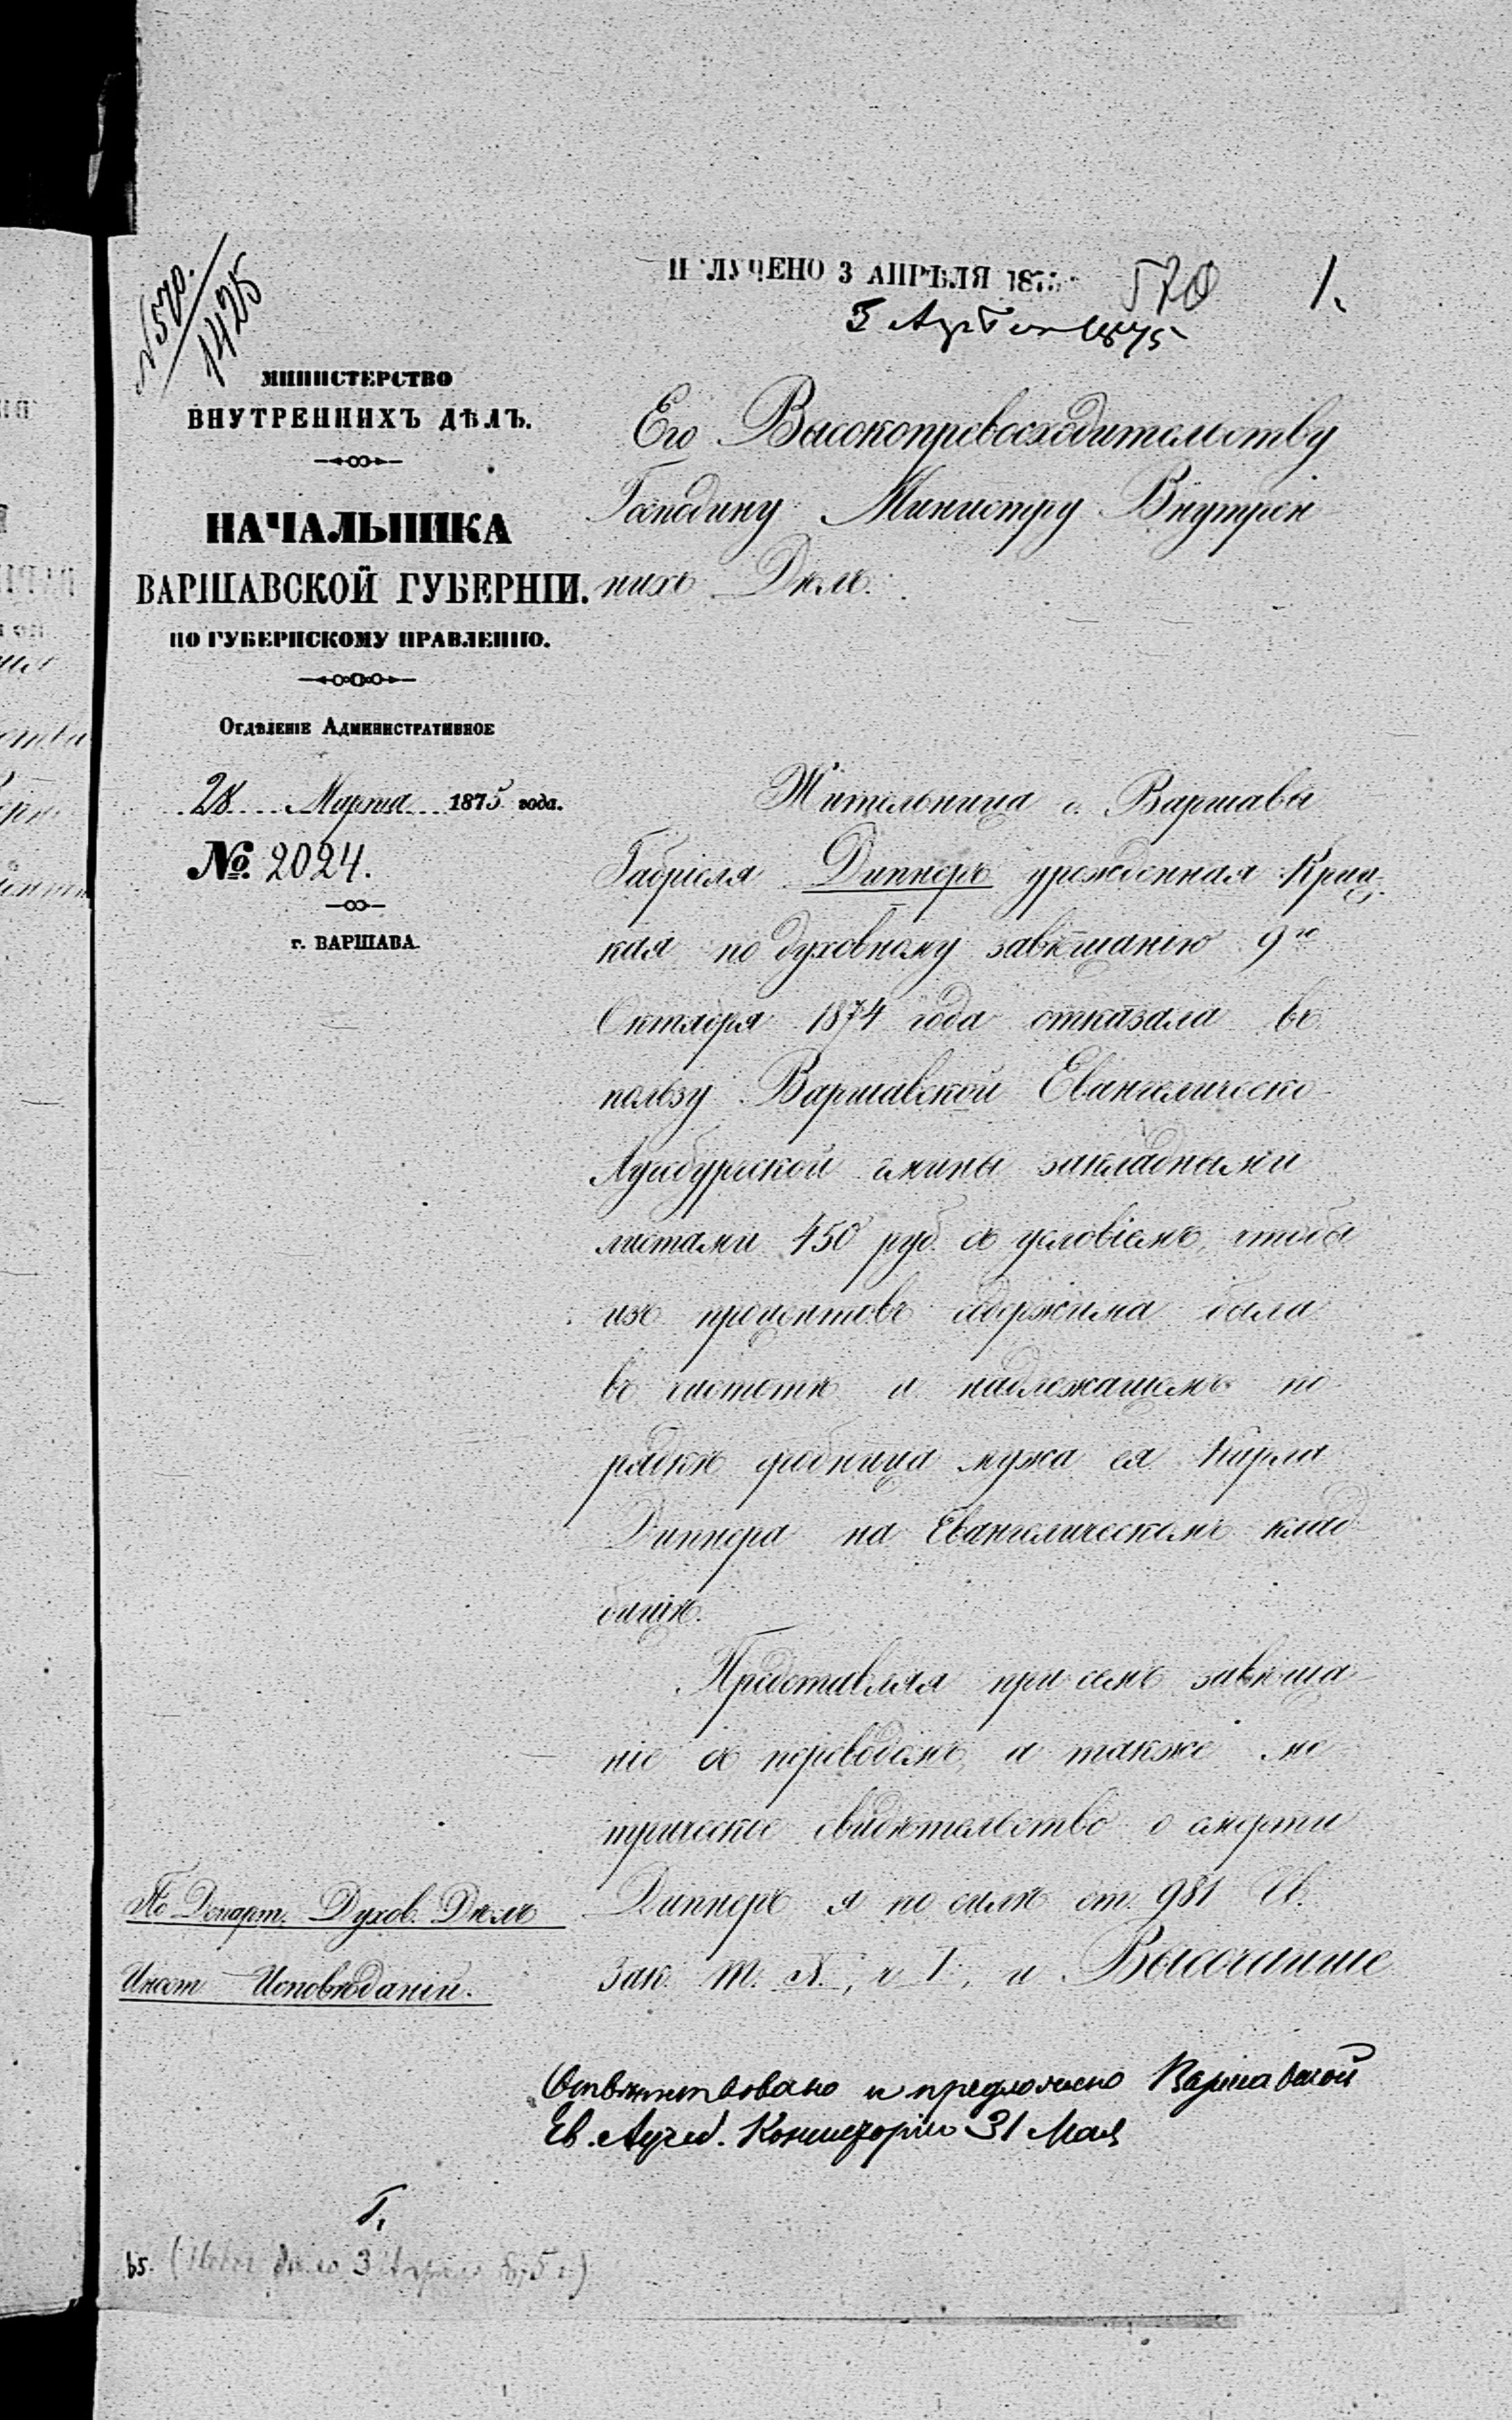 № 570.
1425
П ЛУЧЕНО 3 АПРѢЛЯ 187
570
1.
1875
МИНИСТЕРСТВО
ВНУТРЕННИХЪ ДѢЛЪ.
НАЧАЛЬНИКА
ВАРШАВСКОЙ ГУБЕРНІИ.
ПО ГУБЕРНСКОМУ ПРАВЛЕНІЮ.
Отдѣленіе Административное
28 Марта 1875 года.
№ 2024.
г. ВАРШАВА.
Его Высокопревосходительству
Господину Министру Внутрен
нихъ Дѣлъ.
Жительница г. Варшавы
Габріеля Дипнеръ урожденная
кая по духовному завѣщанію 9го
Октября 1874 года отказала въ
пользу Варшавской Евангелическо
Аугсбургской гмины закладными
листами 450 руб. съ условіемъ, чтобы
изъ процентовъ содержима была
въ чистотѣ и надлежащемъ по
рядкѣ гробница мужа ея Карла
Дипнера на Евангелическомъ клад
бищѣ.
Представляя при семъ завѣща
ніе съ переводомъ, а также ме
трическое свидѣтельство о смерти
Дипнеръ я по силѣ ст. 981 Св.
Зак. т. X, ч I, и Высочайше
По Департ. Духов. Дѣлъ
Иност Исповѣданій.
Отвѣтствовано и предложено Варшавской
Ев. Аугсб. Консисторіи 31 Мая
Г.
65.